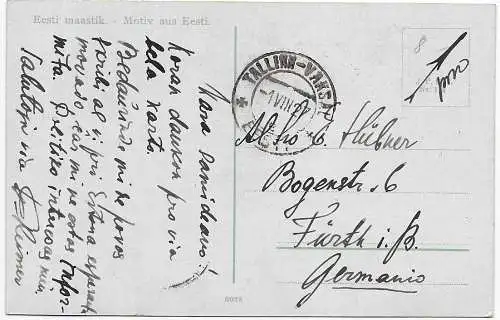 Eesti maastik. - Motiv aus Eesti.
Kara Samideano!
Koran dankon pro via
bela karto.
Bedaŭrinde mi ne povos
skribi al vi pri Estona esperanto
movado, ĉar mi ne estas infor-
mita. Pretiko interesas min.
Salutojn via
TALLINN-VAKSAL
EESTI
Al s-ro C. Hübner
Bogenstr. 6
Fürth i. B.
Germanio
8
6073